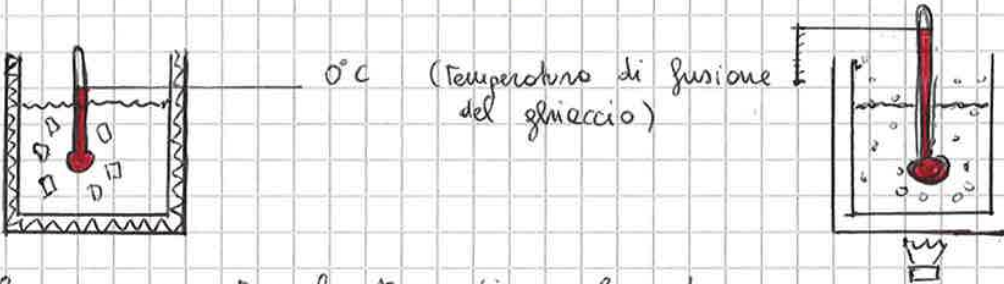 0°C (Temperatura di fusione
del ghiaccio)